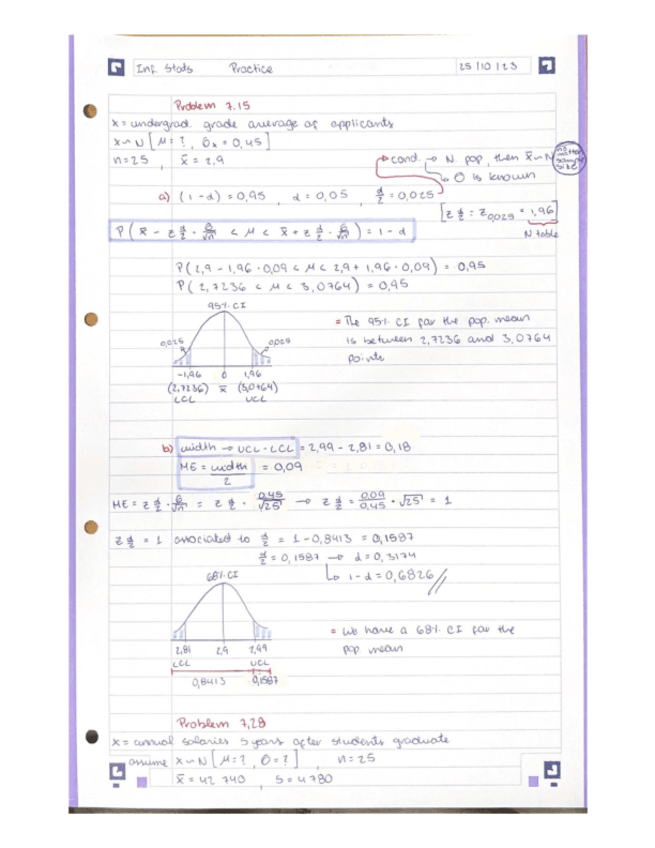 Inf. Stats Practice 25/10/23
Problem 7.15
x = undergrad. grade average of applicants
x ~ N [ μ = ? , σx = 0,45 ]
n = 25 , x̄ = 2,9
cond. → N. pop, then x̄ ~ N
no matter sample size
↳ σ is known
a) (1-α) = 0,95 , α = 0,05 , α/2 = 0,025
[ z α/2 = z 0,025 = 1,96 ]
N table
P ( x̄ - z α/2 · σ/√n < μ < x̄ + z α/2 · σ/√n ) = 1 - α
P ( 2,9 - 1,96 · 0,09 < μ < 2,9 + 1,96 · 0,09 ) = 0,95
P ( 2,7236 < μ < 3,0764 ) = 0,95
95% CI
0,025 0,025
-1,96 0 1,96
(2,7236) x̄ (3,0764)
LCL UCL
= The 95% CI for the pop. mean
is between 2,7236 and 3,0764
points
b) width → UCL - LCL = 2,99 - 2,81 = 0,18
ME = width/2 = 0,09
ME = z α/2 · σ/√n = z α/2 · 0,45/√25 → z α/2 = 0,09/0,45 · √25 = 1
z α/2 = 1 associated to α/2 = 1 - 0,8413 = 0,1587
α/2 = 0,1587 → α = 0,3174
↳ 1 - α = 0,6826 //
68% CI
2,81 2,9 2,99
LCL UCL
0,8413 0,1587
= We have a 68% CI for the
pop. mean
Problem 7,28
x = annual salaries 5 years after students graduate
assume x ~ N [ μ = ? , σ = ? ] , n = 25
x̄ = 42 740 , S = 4 780